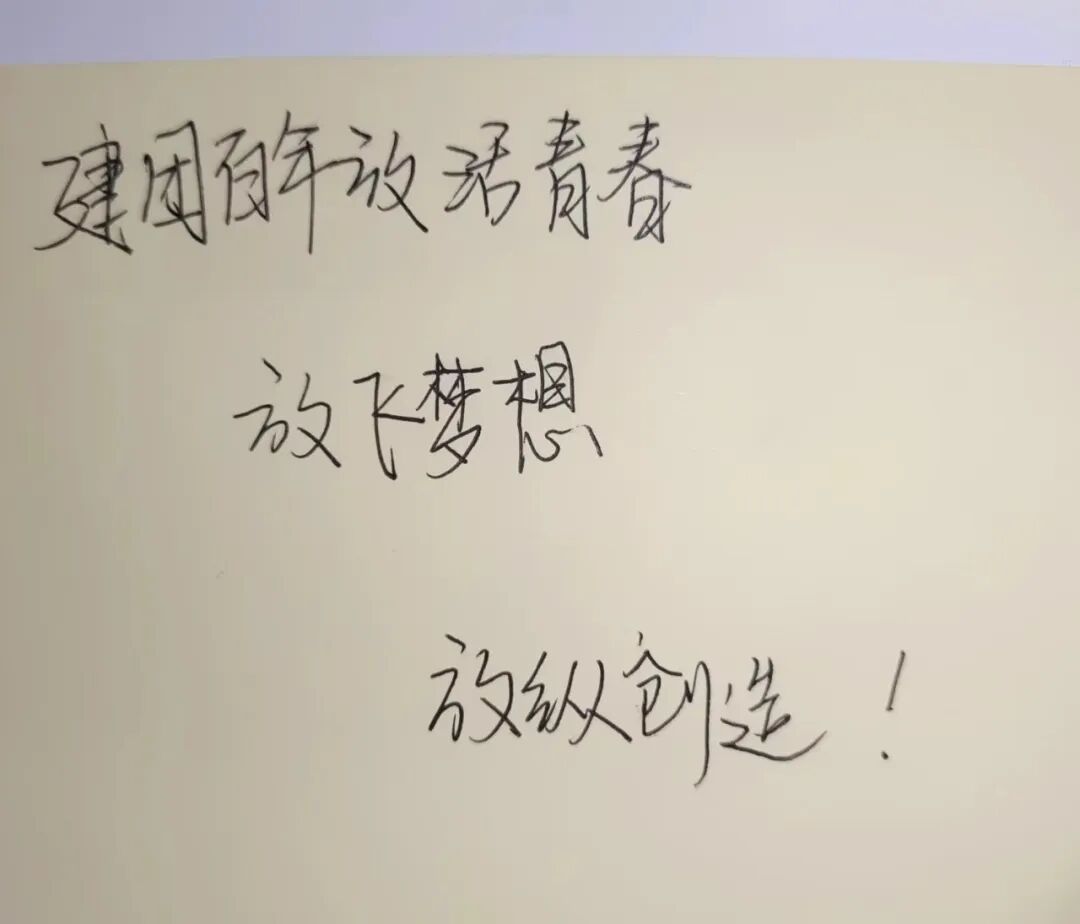 建团百年放活青春
放飞梦想
放纵创造!